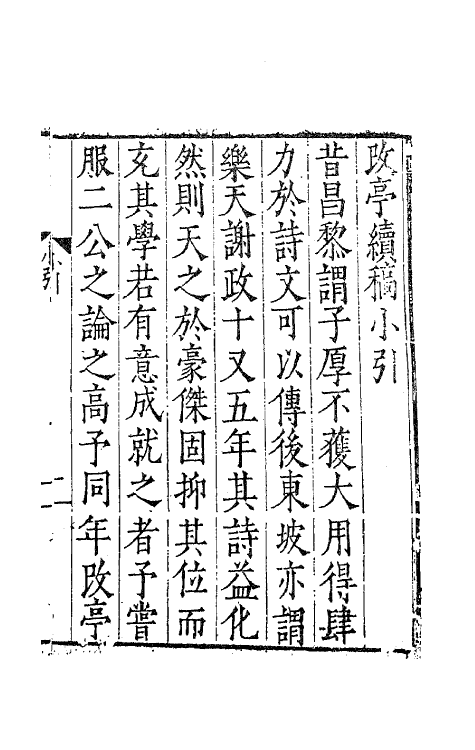 改亭續稿小引
昔昌黎謂子厚不獲大用得肆
力於詩文可以傳後東坡亦謂
樂天謝政十又五年其詩益化
然則天之於豪傑固抑其位而
充其學若有意成就之者予嘗
服二公之論之高予同年改亭
小引
一